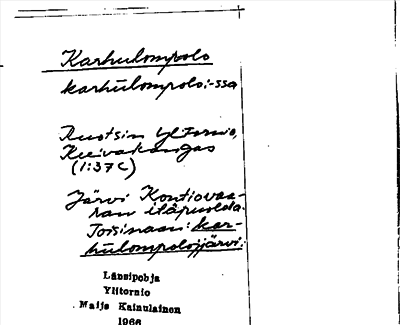 Karhulompolo
karhulompolo:-ssa
Ruotsin Ylitornio,
Kuivakangas
(1:37C)
Järvi Kontiovaa-
ran itäpuolella.
Toisinaan: kar-
hulompolojjärvi:
Länsipohja
Ylitornio
Maija Kainulainen
1966